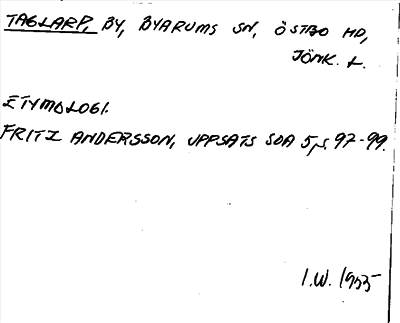 TAGLARP, BY, BYARUMS SN, ÖSTBO HD,
JÖNK. L.
ETYMOLOGI.
FRITZ ANDERSSON, UPPSATS SOA 5, S. 97-99.
I.W. 1955